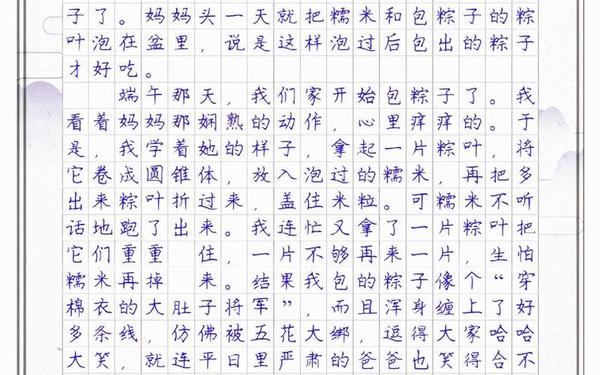 子了。妈妈头一天就把糯米和包粽子的粽
叶泡在盆里，说是这样泡过后包出的粽子
才好吃。
端午那天，我们家开始包粽子了。我
看着妈妈那娴熟的动作，心里痒痒的。于
是，我学着她的样子，拿起一片粽叶，将
它卷成圆锥体，放入泡过的糯米，再把多
出来粽叶折过来，盖住米粒。可糯米不听
话地跑了出来。我连忙又拿了一片粽叶把
它们重重 住，一片不够再来一片，生怕
糯米再掉 来。结果我包的粽子像个“穿
棉衣的大肚子将军”，而且浑身缠上了好
多条线，仿佛被五花大绑，逗得大家哈哈
大笑，就连平日里严肃的爸爸也笑得合不